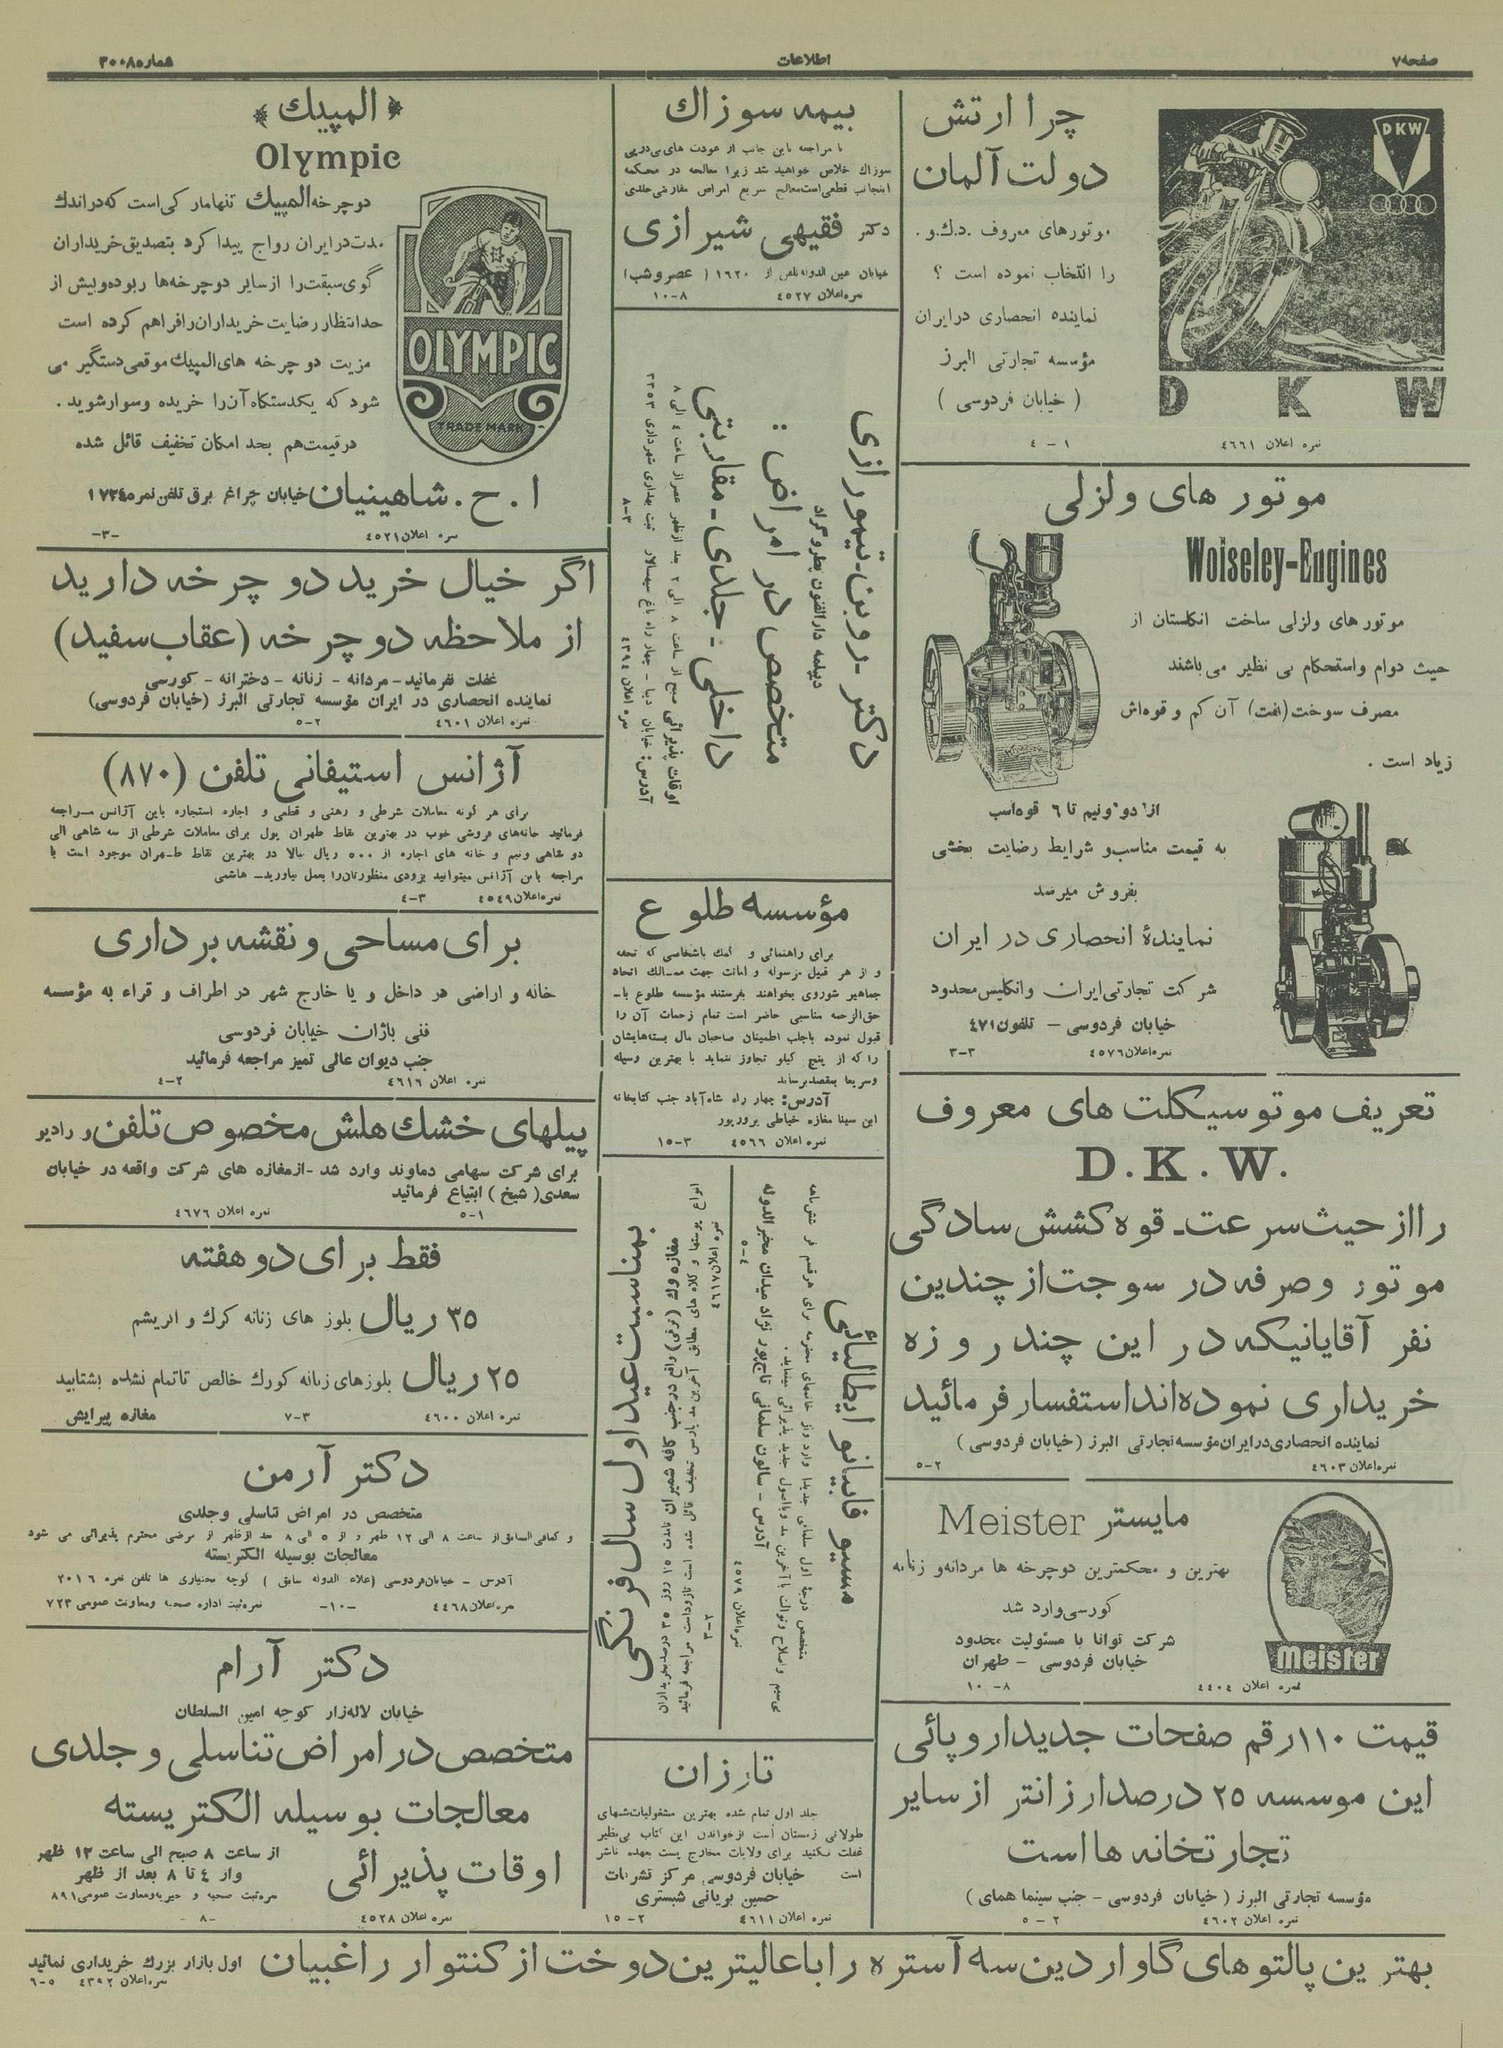 صفحه ۷
اطلاعات
شماره ۳۰۰۸
چرا ارتش
دولت آلمان
موتورهای معروف .د.ک.و.
را انتخاب نموده است ؟
نماینده انحصاری در ایران
مؤسسه تجارتی البرز
( خیابان فردوسی )
نمره اعلان ٤٦٦١
۱ - ٤
DKW
D K W
موتور های ولزلی
Wolseley-Engines
موتور های ولزلی ساخت انگلستان از
حیث دوام و استحکام بی نظیر می باشند
مصرف سوخت (نفت) آن کم و قوه اش
زیاد است .
از دو و نیم تا ٦ قوه اسب
به قیمت مناسب و شرایط رضایت بخشی
بفروش میرسد
نمایندهٔ انحصاری در ایران
شرکت تجارتی ایران و انگلیس محدود
خیابان فردوسی - تلفون ٤۷۱
نمره اعلان ٤٥۷٦
۳-۳
تعریف موتوسیکلت های معروف
D.K.W.
را از حیث سرعت ـ قوه کشش سادگی
موتور و صرفه در سوخت از چندین
نفر آقایانیکه در این چند روزه
خریداری نموده اند استفسار فرمائید
نماینده انحصاری در ایران مؤسسه تجارتی البرز ( خیابان فردوسی )
نمره اعلان ٤٦۰۳
۲-٥
مایستر Meister
بهترین و محکمترین دوچرخه ها مردانه و زنانه
کورسی وارد شد
شرکت توانا با مسئولیت محدود
خیابان فردوسی - طهران
نمره اعلان ٤٤۰٤
۸- ۱۰
Meister
قیمت ۱۱۰ رقم صفحات جدید اروپائی
این موسسه ۲۵ درصد ارزانتر از سایر
تجارتخانه ها است
مؤسسه تجارتی البرز ( خیابان فردوسی - جنب سینما همای )
نمره اعلان ٤٦۰۲
۲ - ٥
بیمه سوزاک
با مراجعه باین جانب از عودت های پی درپی
سوزاک خلاص خواهید شد زیرا معالجه در محکمه
اینجانب قطعی است معالج سریع امراض مقاربتی جلدی
دکتر فقیهی شیرازی
خیابان عین الدوله تلفن از ۱٦۲۰ ( عصر و شب )
نمره اعلان ٤٥۲۷
۸-۱۰
دکتر - روبن - تیمورازی
دیپلمه دارالفنون پطروگراد
متخصص در امراض :
داخلی - جلدی - مقاربتی
اوقات پذیرائی صبح از ساعت ۸ الی ۲ بعد از ظهر عصر از ساعت ٤ الی ۸
آدرس: خیابان دنیا - چهار راه باغ سپهسالار ثبت بهداری شهرداری ۳۳٥۳
نمره اعلان ٤۳۹٤
۳-۸
مؤسسه طلوع
برای راهنمائی و کمک باشخاصی که تحفه
و از هر قبیل مرسوله و امانت جهت ممالک اتحاد
جماهیر شوروی بخواهند بفرستند مؤسسه طلوع با-
حق الزحمه مناسبی حاضر است تمام زحمات آن را
قبول نموده با جلب اطمینان صاحبان مال بسته هایشان
را که از پنج کیلو تجاوز ننماید با بهترین وسیله
و سریعا بمقصد برساند
آدرس: چهار راه شاه آباد جنب کتابخانه
ابن سینا مغازه خیاطی پرورپور
نمره اعلان ٤٥٦٦
۳-۱٥
مسیو فابیانو ایطالیائی
متخصص درجهٔ اول سلمانی جدیداً وارد و از خانمهای محترمه برای هر قسم فر شش ماهه
بی سیم و اصلاح و تواك با آخرین مد و باصول جدید پذیرائی مینماید .
آدرس - سالون سلمانی تاج پور نژاد میدان مخبرالدوله
نمره اعلان ٤٥۷۹
٤-٥
بمناسبت عید اول سال فرنگی
مغازه وک (ترقی) واقع در جنب کافه شمیران تا مدت ۱٥ روز ۳٥ درصد بخریداران
انواع پوستها و کلاه های مطابق آخرین مد پارس تخفیف قائل شده است تا زود است مراجعه فرمائید
نمره اعلان ٤٦۱۷
۲-۳
تارزان
جلد اول تمام شده بهترین مشغولیات شبهای
طولانی زمستان است از خواندن این کتاب بی نظیر
غفلت نکنید برای ولایات مخارج پست بعهده ناشر
است خیابان فردوسی مرکز نشریات
حسین بریانی شبستری
نمره اعلان ٤٦۱۱
۲- ۱٥
المپیک
Olympic
دوچرخه المپیک تنها مارکی است که در اندک
مدت در ایران رواج پیدا کرد بتصدیق خریداران
گوی سبقت را از سایر دوچرخه ها ربوده و بیش از
حد انتظار رضایت خریداران را فراهم کرده است
مزیت دو چرخه های المپیک موقعی دستگیر می
شود که یکدستگاه آن را خریده و سوار شوید .
در قیمت هم بحد امکان تخفیف قائل شده
OLYMPIC
TRADE MARK
ا . ح . شاهینیان خیابان چراغ برق تلفن نمره ۱۷۲٤
نمره اعلان ٤٥۲۱
-۳-
اگر خیال خرید دو چرخه دارید
از ملاحظه دو چرخه (عقاب سفید)
غفلت نفرمائید - مردانه - زنانه - دخترانه - کورسی
نماینده انحصاری در ایران مؤسسه تجارتی البرز (خیابان فردوسی)
نمره اعلان ٤٦۰۱
۲-٥
آژانس استیفانی تلفن (۸۷۰)
برای هر گونه معاملات شرطی و رهنی و قطعی و اجاره استجاره باین آژانس مراجعه
فرمائید خانه های فروشی خوب در بهترین نقاط طهران پول برای معاملات شرطی از سه شاهی الی
دو شاهی و نیم و خانه های اجاره از ٥۰۰ ریال ببالا در بهترین نقاط طهران موجود است با
مراجعه باین آژانس میتوانید بزودی منظورتان را بعمل بیاورید - هاشمی
نمره اعلان ٤٥٤۹
۳-٤
برای مساحی و نقشه برداری
خانه و اراضی در داخل و یا خارج شهر در اطراف و قراء به مؤسسه
فنی باژان خیابان فردوسی
جنب دیوان عالی تمیز مراجعه فرمائید
نمره اعلان ٤٦۱٦
۲-٤
پیلهای خشک هلش مخصوص تلفن و رادیو
برای شرکت سهامی دماوند وارد شد - از مغازه های شرکت واقعه در خیابان
سعدی ( شیخ ) ابتیاع فرمائید
نمره اعلان ٤٦۷٦
۱-٥
فقط برای دو هفته
۳۵ ریال بلوز های زنانه کرک و ابریشم
۲۵ ریال بلوزهای زنانه کورک خالص تا تمام نشده بشتابید
نمره اعلان ٤٦۰۰
۳-۷
مغازه پیرایش
دکتر آرمن
متخصص در امراض تناسلی و جلدی
و کمافی السابق از ساعت ۸ الی ۱۲ ظهر و از ٥ الی ۸ بعد از ظهر از مرضی محترم پذیرائی می شود
معالجات بوسیله الکتریسته
آدرس - خیابان فردوسی (علاء الدوله سابق ) کوچه بختیاری ها تلفن نمره ۲۰۱٦
نمره اعلان ٤٤٦۸
-۱۰-
نمره ثبت اداره صحیه و معاونت عمومی ۷۲۳
دکتر آرام
خیابان لاله زار کوچه امین السلطان
متخصص در امراض تناسلی و جلدی
معالجات بوسیله الکتریسته
اوقات پذیرائی
از ساعت ۸ صبح الی ساعت ۱۲ ظهر
و از ٤ تا ۸ بعد از ظهر
نمره ثبت صحیه و خیریه و معاونت عمومی ۸۹۱
نمره اعلان ٤٥۲۸
- ۸ -
بهترین پالتوهای گاواردین سه آستره را با عالیترین دوخت از کنتوار راغبیان اول بازار بزرگ خریداری نمائید
نمره اعلان ٤۳۹۲
٥-٦